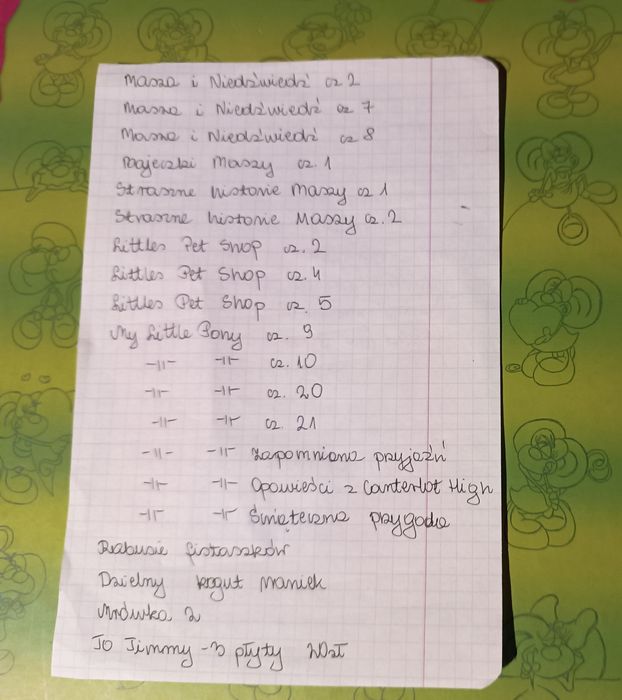 Masza i Niedźwiedź cz 2
Masza i Niedźwiedź cz 7
Masza i Niedźwiedź cz 8
Bajeczki Maszy cz. 1
Straszne historie Maszy cz 1
Straszne historie Maszy cz. 2
Littles Pet Shop cz. 2
Littles Pet Shop cz. 4
Littles Pet Shop cz. 5
My Little Pony cz. 9
-||- -||- cz. 10
-||- -||- cz. 20
-||- -||- cz. 21
-||- -||- Zapomniana przyjaźń
-||- -||- Opowieści z Canterlot High
-||- -||- Świąteczna przygoda
Rabusie fistaszków
Dzielny kogut Maniek
Mrówka Z
Jo Jimmy - 3 płyty 20zł